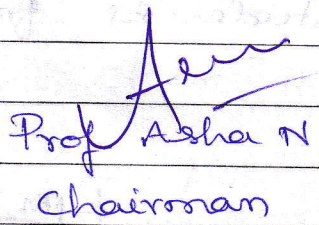 Prof Asha N
Chairman